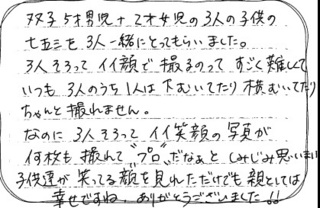 双子5才男児+2才女児の3人の子供の
七五三を3人一緒にとってもらいました。
3人そろってイイ顔で撮るのってすごく難しくて
いつも3人のうち1人は下むいてたり横むいてたり
ちゃんと撮れません。
なのに3人そろってイイ笑顔の写真が
何枚も撮れて“プロ”だなぁとしみじみ思いました
子供達が笑ってる顔を見れただけでも親としては
幸せですね。ありがとうございました!!